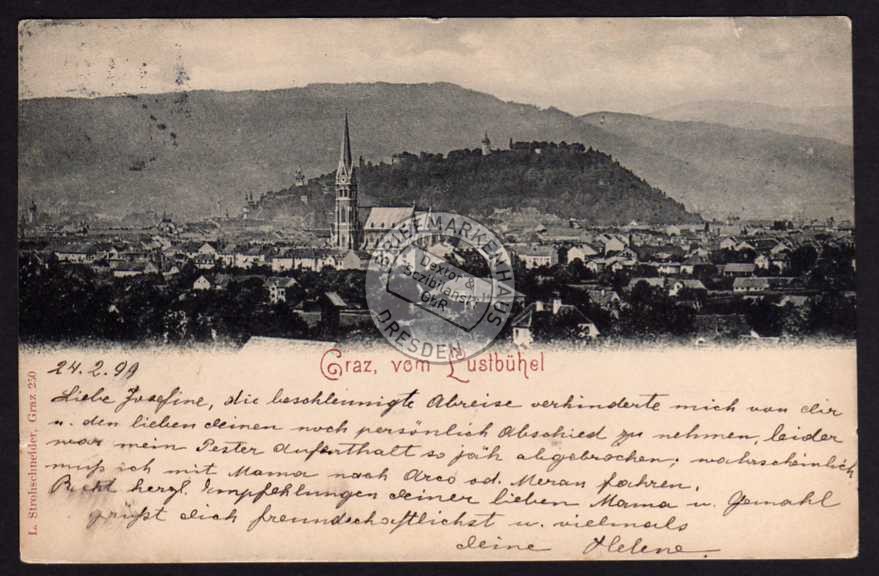 Graz, vom Lustbühel
24.2.99
Liebe Josefine, die beschleunigte Abreise verhinderte mich von dir
u. den lieben deinen noch persönlich Abschied zu nehmen, leider
war mein Pester Aufenthalt so jäh abgebrochen; wahrscheinlich
muß ich mit Mama nach Arco od. Meran fahren.
Recht herzl. Empfehlungen deiner lieben Mama u. Gemahl
grüßt dich freundschaftlichst u. vielmals
deine Helene
L. Strohschneider, Graz 250
BRIEFMARKENHAUS
Dexter &
Sezibilanski
GbR
DRESDEN